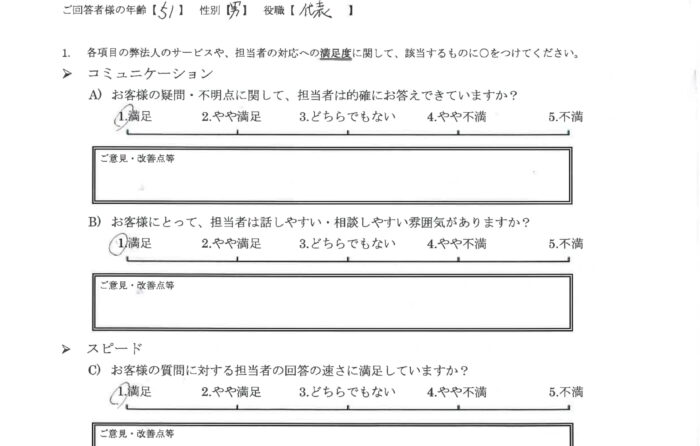 ご回答者様の年齢【51】 性別【男】 役職【代表 】
1. 各項目の弊法人のサービスや、担当者の対応への満足度に関して、該当するものに○をつけてください。
➢ コミュニケーション
A) お客様の疑問・不明点に関して、担当者は的確にお答えできていますか？
1.満足 2.やや満足 3.どちらでもない 4.やや不満 5.不満
ご意見・改善点等
B) お客様にとって、担当者は話しやすい・相談しやすい雰囲気がありますか？
1.満足 2.やや満足 3.どちらでもない 4.やや不満 5.不満
ご意見・改善点等
➢ スピード
C) お客様の質問に対する担当者の回答の速さに満足していますか？
1.満足 2.やや満足 3.どちらでもない 4.やや不満 5.不満
ご意見・改善点等